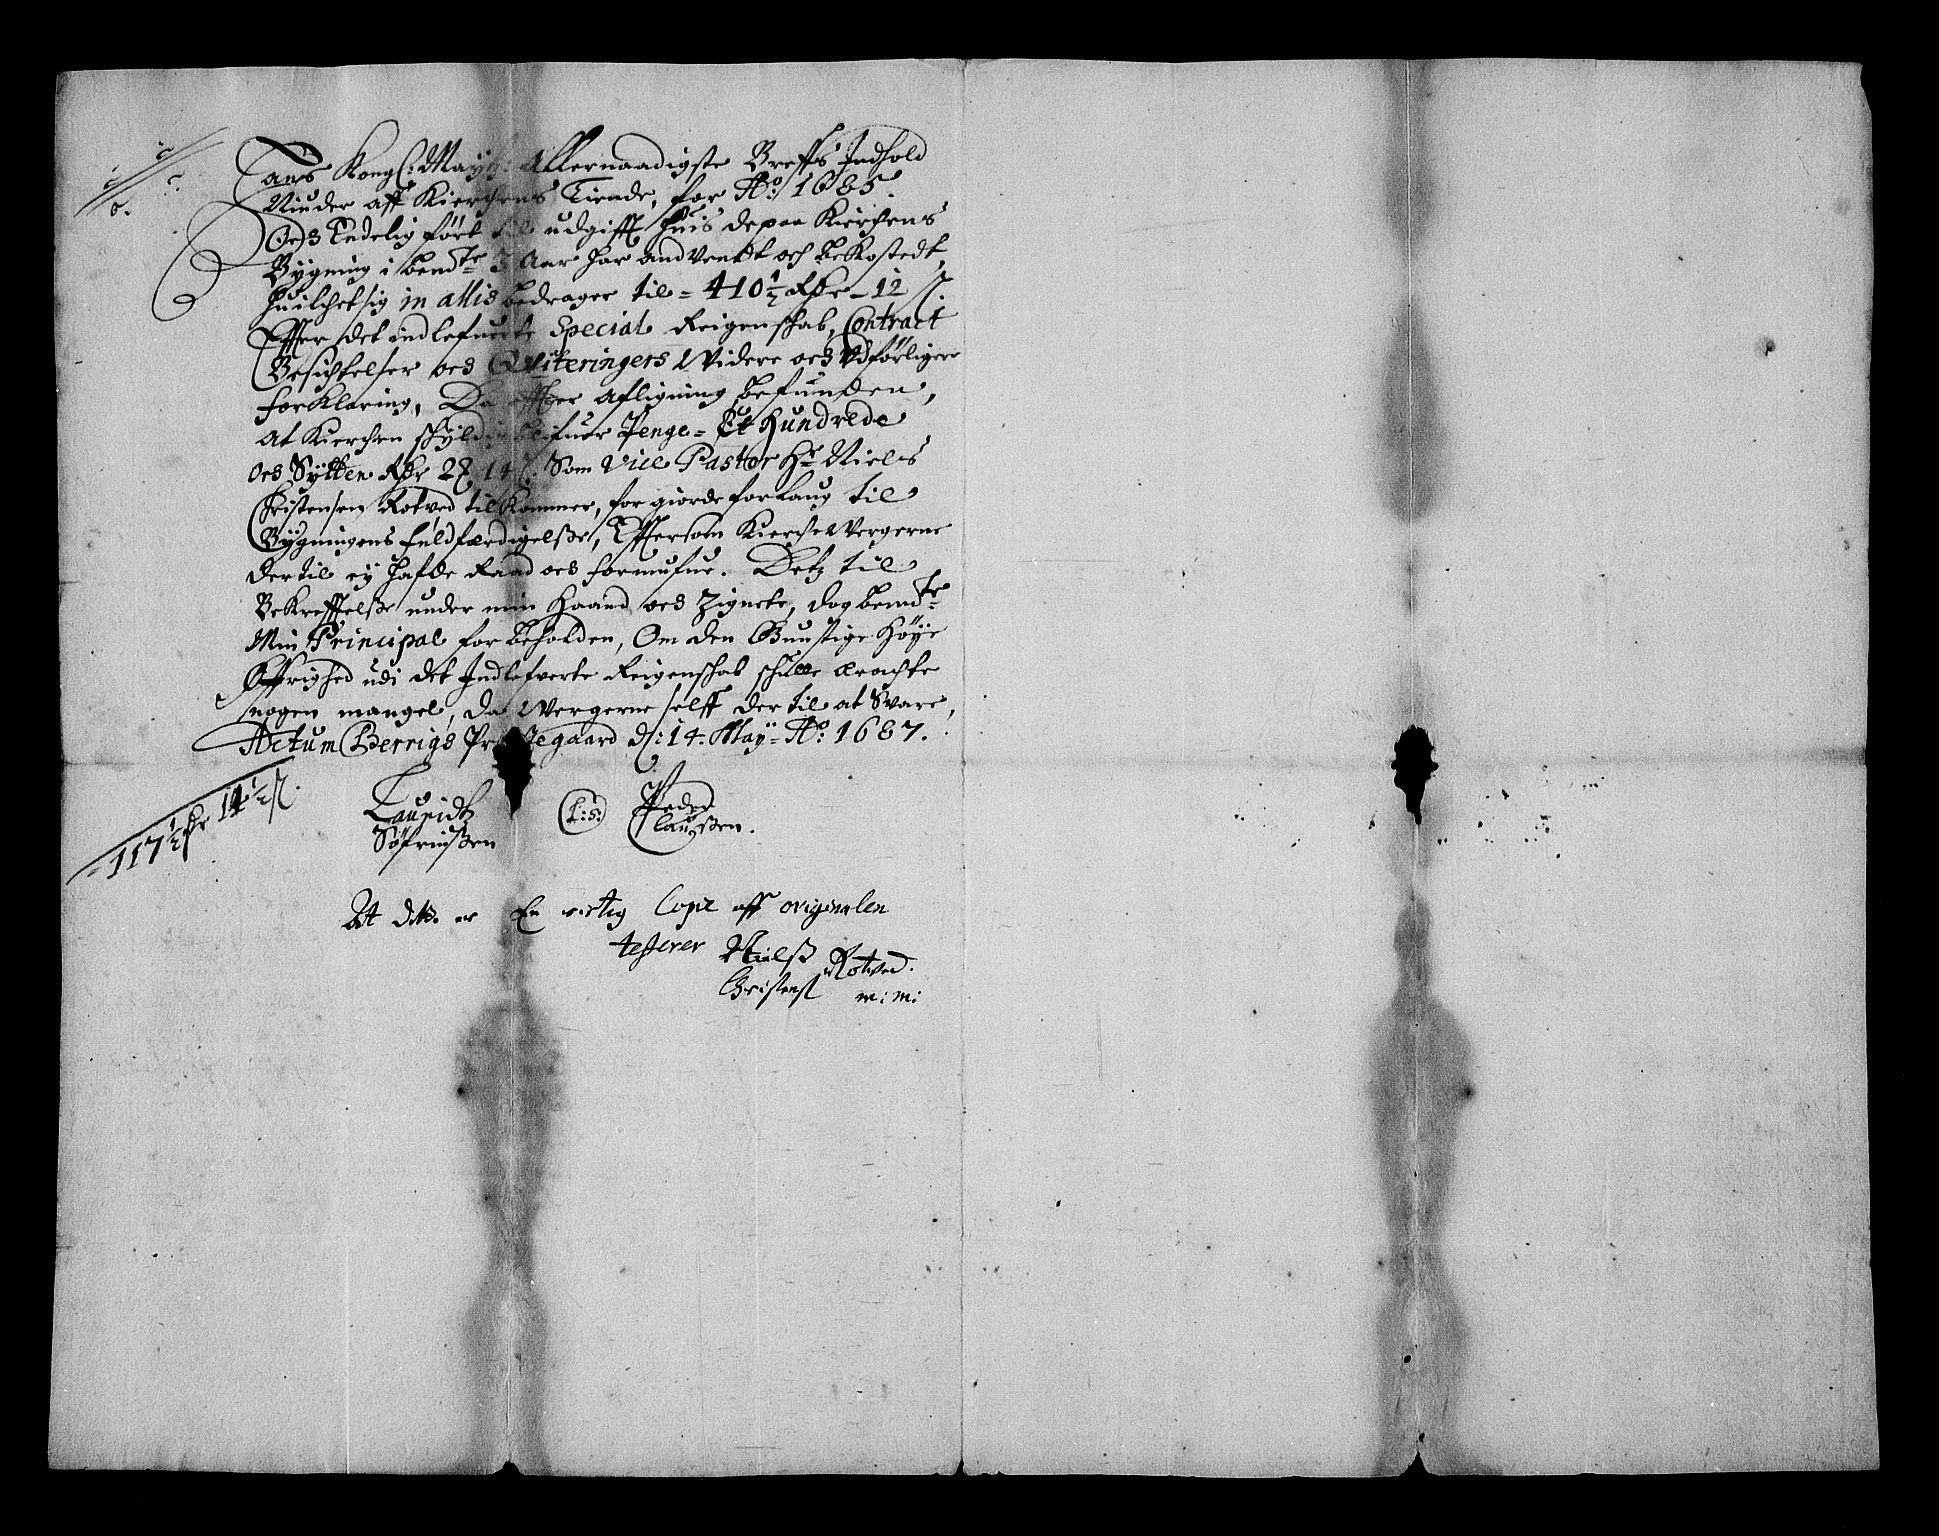 Hans Kongl: Mayt: Allernaadigste Breffs Indhold
Niuder aff Kierchens Tiende, for Ao: 1685.
Oes Endelig ført til udgifft huis depaa Kierchens
Bygning i bemdte 3 Aar har andvendt och bekostedt,
huilchet sig in allis bedrager til = 410½ Rdr - 12 ß.
Effter det indlefuerte Special Reigenschab, Contract
Besichtelser oes Qviteringers Widere oes Vdførligere
forklaring, Da effter afligning befunden,
At Kierchen schyldig blifuer Penge = Et Hundrede
oes Sytten Rdr 2 ꝶ 14 ß. Som Vice Pastor Hr Niels
Christensen Rotved tilkommer, for giorde forlaug til
Bygningens fuldfærdigelsse, Effersom Kierchewergerne
dertil ey hafde Raad oes formufue. Detz til
Bekrefftelsse under min Haand oes Zignete, dog bemdte
Min Principal for beholden, Om den Gunstige Høye
Øffrighed udi det Indlefverte Reigenschab schulle eracht​e
nogen mangel, da Wergerne selff der til at Svare,
Actum Berrigs Prestegaard d: 14. May = Ao: 1687.
= 117½ dr 14½ ß.
Lauridtz
Søfrinssen
(L:S:)
Peder
Claussen.
At dette er En rictig Copie aff originalen
testerer Nielss Rotved.
Christensß m: m: